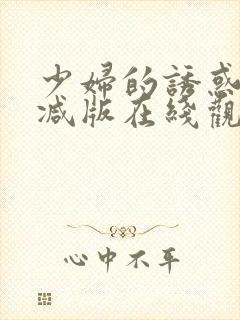 少婦的誘惑
减版在綫觀
心中不平